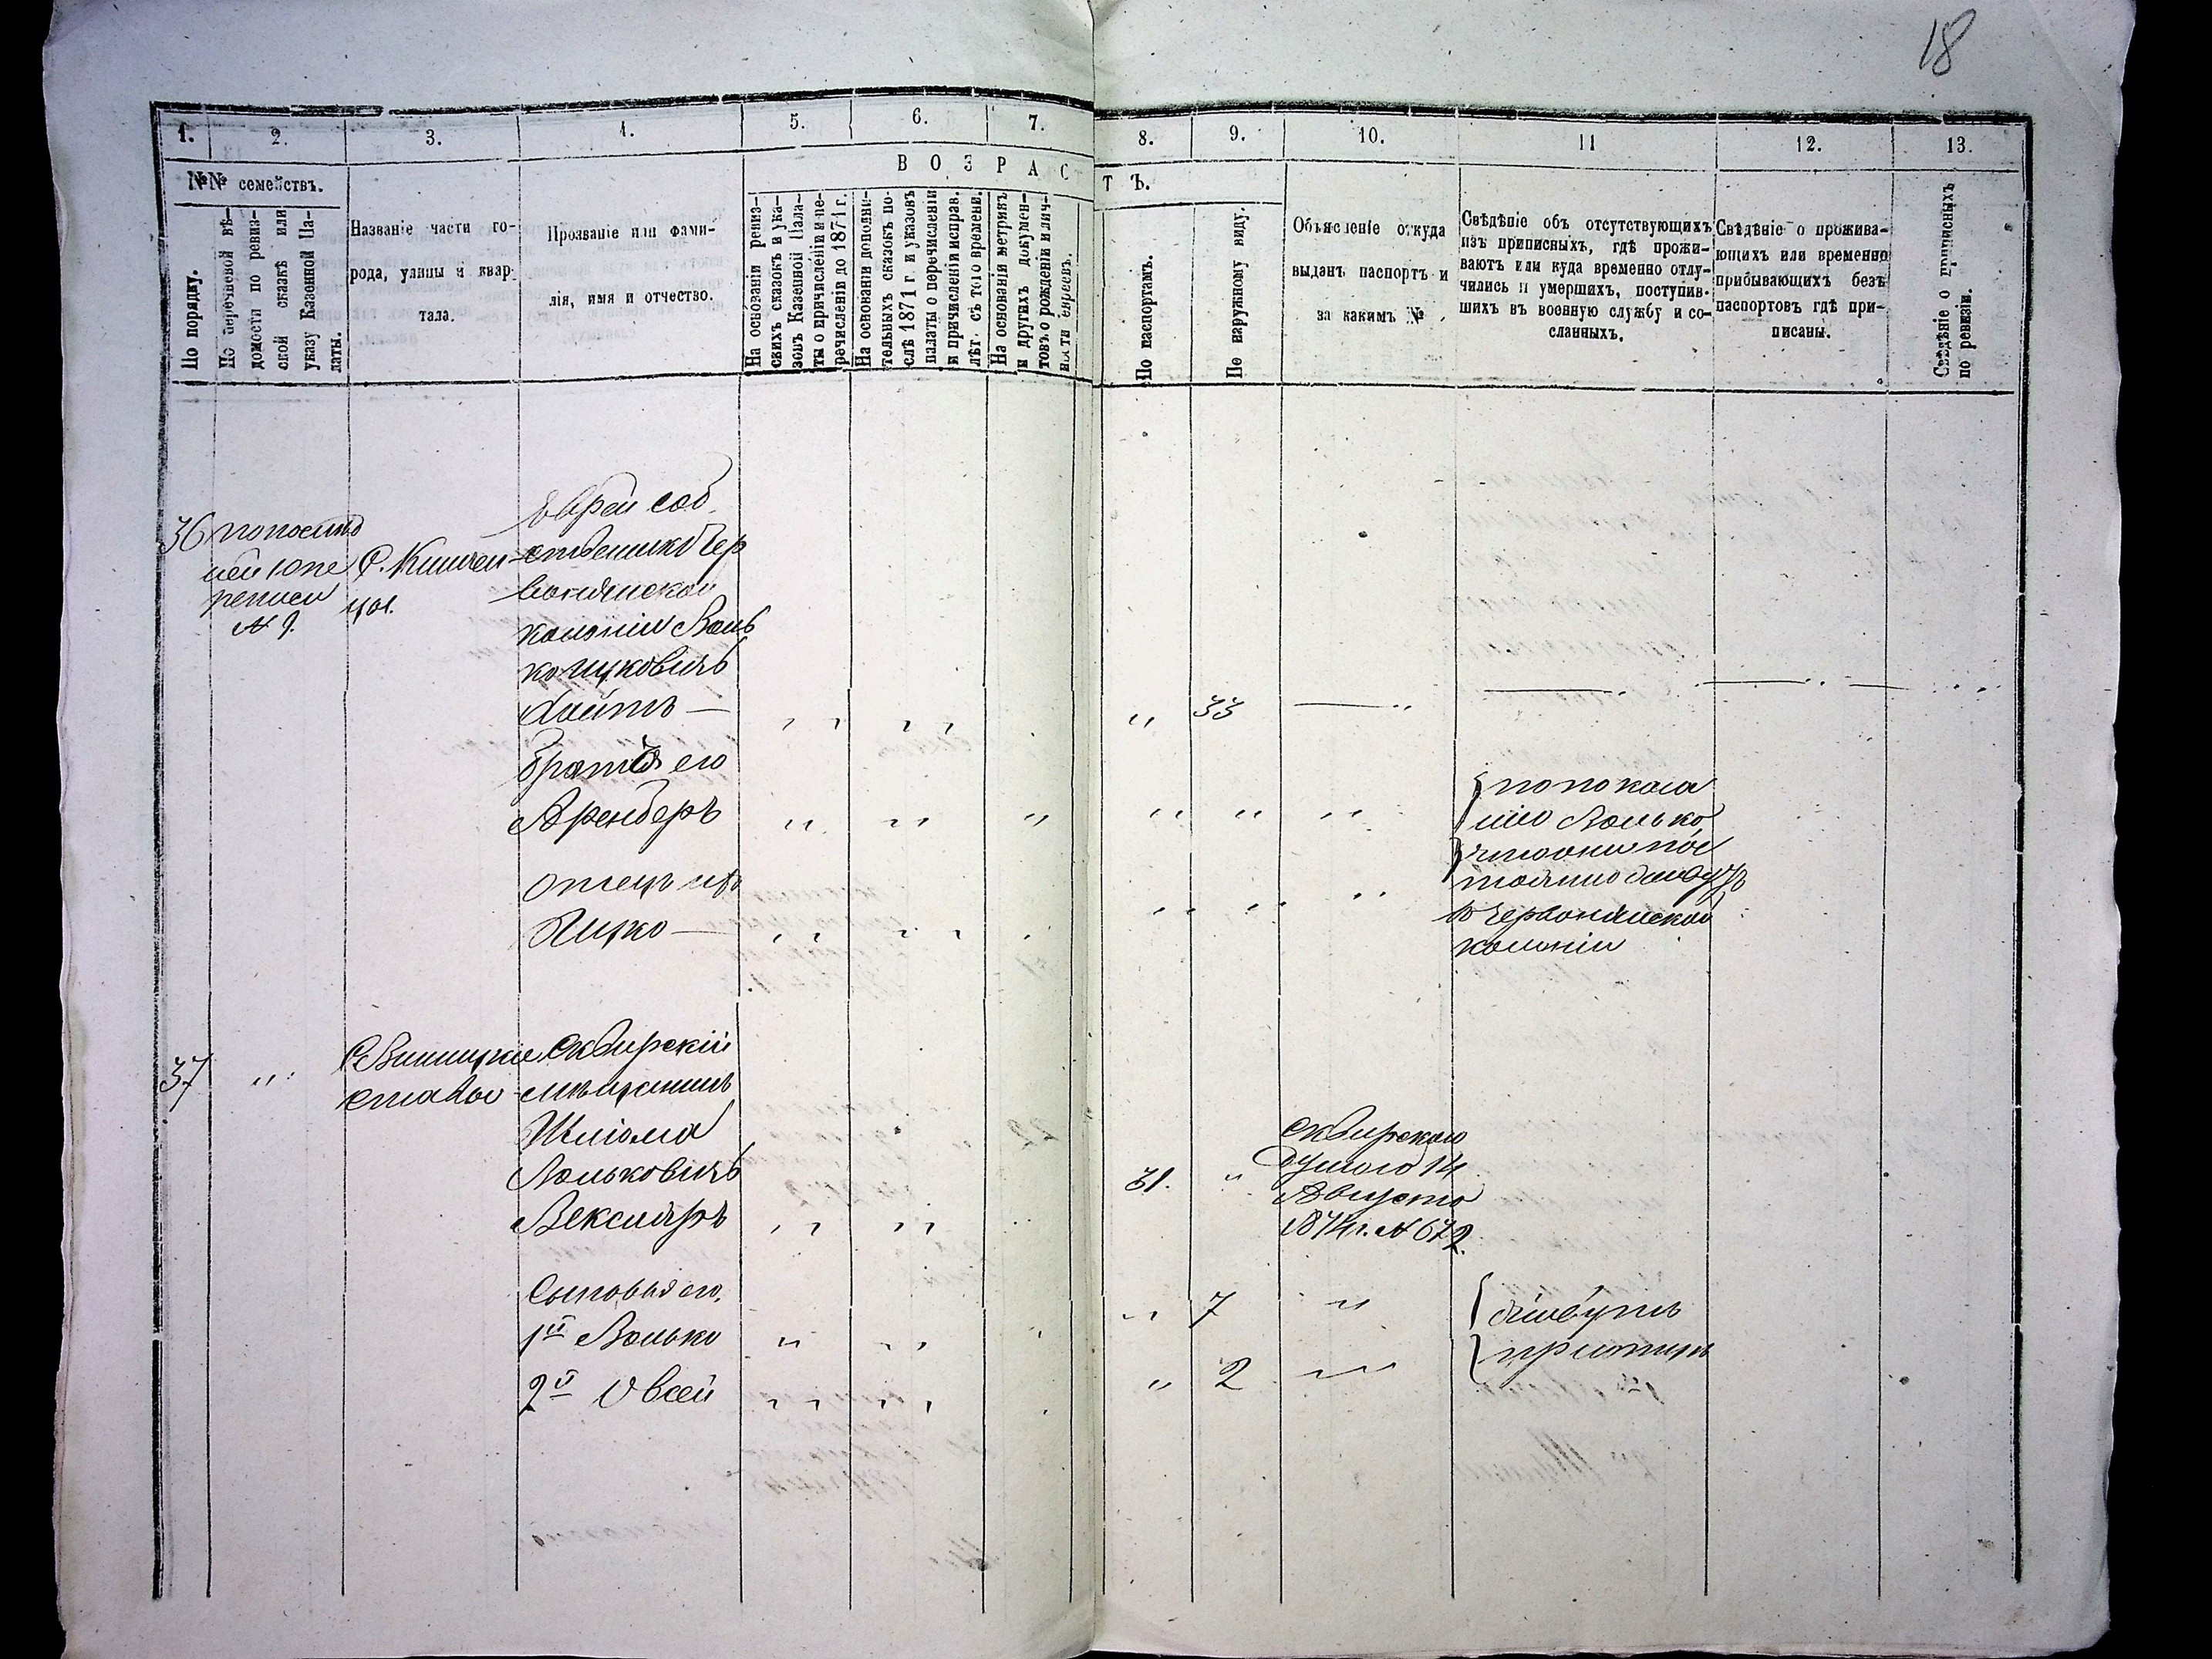 18
1. 2. 3. 4. 5. 6. 7. 8. 9. 10. 11 12. 13.
№№ семействъ.
По порядку.
По перечневой вѣ-
домости по ревиз-
ской сказкѣ или
указу Казенной Па-
латы.
Названіе части го-
рода, улицы и квар-
тала.
Прозваніе или фами-
лія, имя и отчество.
ВОЗРАСТЪ.
На основаніи ревиз-
скихъ сказокъ и ука-
зовъ Казенной Пала-
ты о причисленіи и пе-
речисленіи до 1871 г.
На основаніи дополни-
тельныхъ сказокъ по-
слѣ 1871 г. и указовъ
палаты о перечисленіи
и причисленіи исправ.
лѣт. съ того времени.
На основаніи метрикъ
и другихъ докумен-
товъ о рожденіи и лич-
ности евреевъ.
По паспортамъ.
По наружному виду.
Объясненіе откуда
выданъ паспортъ и
за какимъ №
Свѣдѣніе объ отсутствующихъ
изъ приписныхъ, гдѣ прожи-
ваютъ или куда временно отлу-
чились и умершихъ, поступив-
шихъ въ военную службу и со-
сланныхъ.
Свѣдѣніе о прожива-
ющихъ или временно
прибывающихъ безъ
паспортовъ гдѣ при-
писаны.
Свѣдѣніе о приписныхъ
по ревизіи.
36
по
ней 10 пе
реписи
№ 9.
С.
Еврей соб
ственникъ Чер
вонянской
колоніи Воль
ко Ицковичъ
братья его
отецъ ихъ
Ицко
33
по показа
нію Волько
что они пос
тоянно живутъ
въ Червонянской
колоніи
37
ставы
Сквирскій
мѣщанинъ
Шліома
Вольковичъ
Векслеръ
31.
Сквирскаго
14
Августа
1874 г. № 672.
Сыновья его.
1й Волько
7
живутъ
при отцѣ
2й Овсей
2